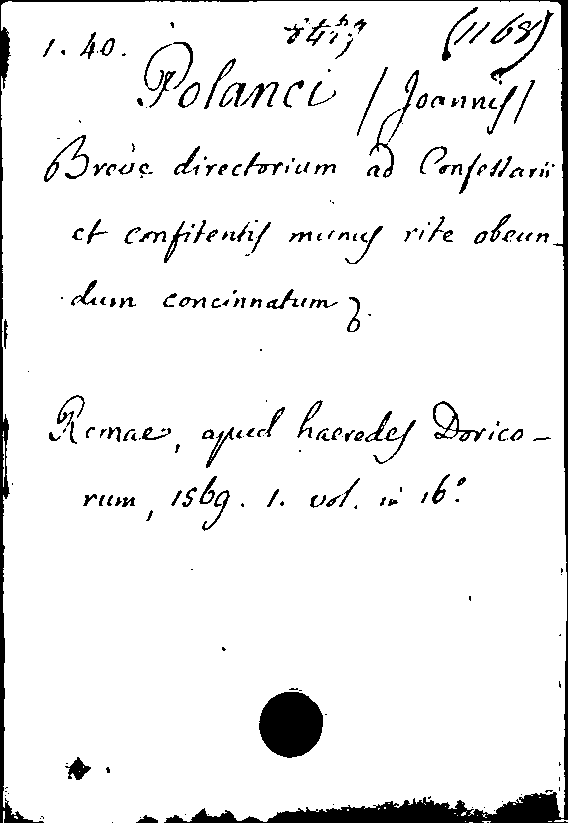 1. 40. (1168)
Polanci /Joannis/
Breve directorium ad Confessarii
et confitentis munus rite obeun-
dum concinnatum
Romae, apud haeredes Dorico-
rum, 1569. 1. vol. in 16°.